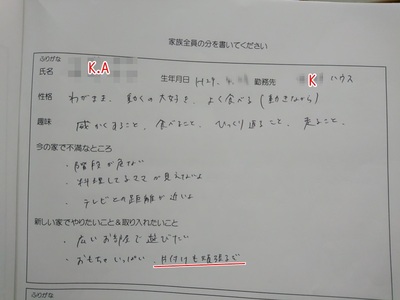 家族全員の分を書いてください
ふりがな
氏名 K.A 生年月日 H29. 勤務先 K ハウス
性格 わがまま、動くの大好き、よく食べる(動きながら)
趣味 食べること、ひっくり返ること、走ること、
今の家で不満なところ
・階段が危ない
・料理してるママが見えないよ
・テレビとの距離が近いよ
新しい家でやりたいこと&取り入れたいこと
・広いお部屋で遊びたい
・おもちゃいっぱい 片付けも頑張るど
ふりがな